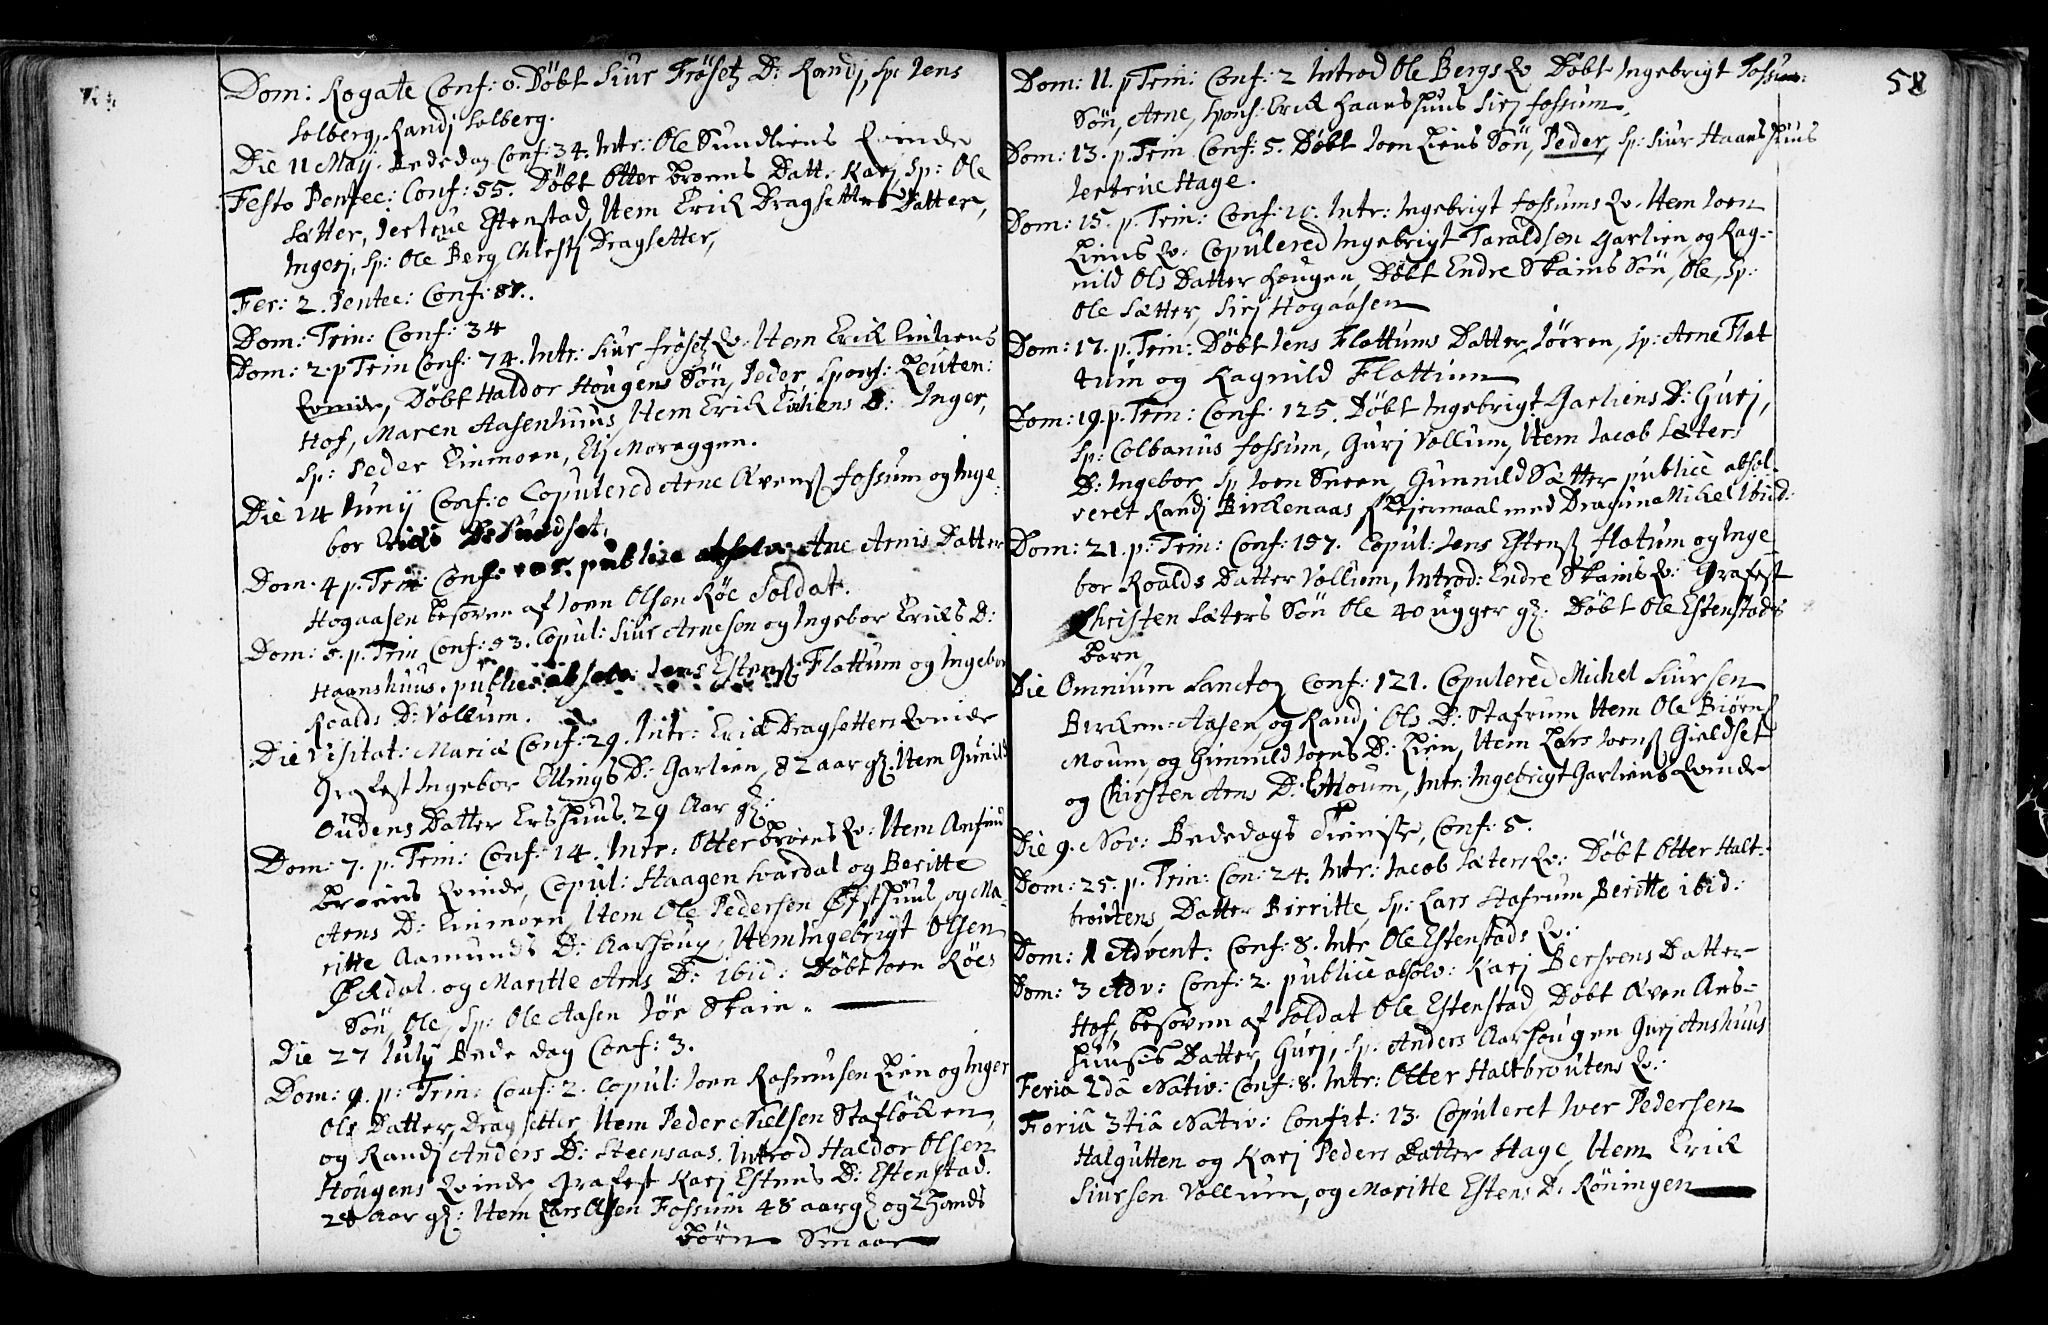 Dom: Rogate Conf: 0. Döbt Siur Frösetz D: Randj, Sp: Jens
Solberg, Randj Solberg.
Die 11 May. Bededag Conf: 34. Intr: Ole Sundliens Qvinde
Festo Pentec: Conf: 55. Döbt Otter Broens Datt. Karj, Sp: Ole
Sætter, Jertrue Estenstad, Item Erick Dragsetters Datter,
Ingerj, Sp: Ole Berg, Christj Dragsetter,
Fer: 2. Pentec: Conf: 87.
Dom: Trin: Conf: 34
Dom: 2. p Trin Conf: 74. Intr: Siur Frösetz Qv. Item Erick Enliens
Qvinde, Döbt Haldor Hougens Sön, Peder, Spons: Leuten:
Hof, Maren Aasenhuus, Item Erick Enliens D: Inger,
Sp: Peder Einmoen, Elj Moraggen.
Die 14 Junij Conf: 0 Copulered Arne Qvenß Fossum og Inge-
bor Ericks D: Sundset.
Dom. 4 p. Trin: Conf: 105. publice absolv: Ane Arnis Datter
Hogaasen besoven af Joen Olsen Röe Soldat.
Dom: 5. p. Trin Conf: 93. Copul: Siur Arnesen og Ingebor Ericks D:
Haanshuus. publice absolv: Jens Estenß: Flattum og Ingebor
Roalds D: Vollum.
Die Visitat: Mariæ Conf: 29. Intr: Erick Dragsetters Qvinde
Grafest Ingebor Ellings D: Garlien, 82 aar gl. Item Gunild
Oudens Datter Ershuus. 29 Aar gl:
Dom: 7. p. Trin: Conf: 14. Intr: Otter Broens Qv: Item Anfind
Broens Qvinde, Copul: Haagen Svardal og Beritte
Arns D: Einmoen, Item Ole Pedersen Øfsthuus, og Ma-
ritte Aamunds D: Aarhoug, Item Ingebrigt Olsen
Øckdal. og Maritte Arns D: ibid: Döbt Joen Röes
Sön, Ole, Sp: Ole Aasen Jör Skain.
Die 27 Julij Bede dag Conf: 3.
Dom: 9. p: Trin: Conf: 2. Copul: Joen Rasmusen Lien og Inger
Ols Datter, Dragsetter, Item Peder Nielsen Staflöcken,
og Randj Anders D: Steensaas. Introd Haldor Olsen
Hougens Qvinde, Grafest Karj Estens D: Estenstad.
28 Aar gl: Item Lars Olsen Fossum 48 aar gl og 2 hands
Börn Smaae
58
Dom: 11. p Trin: Conf: 2 Introd Ole Bergs Qv Döbt Ingebrigt Fossum:
Sön, Arne, Spons: Erick Haanshuus Sirj Fossum.
Dom: 13. p. Trin Conf: 5. Döbt Joen Liens Sön, Peder, Sp: Siur Haanshuus
Jertrue Hage.
Dom: 15. p. Trin: Conf: 10. Intr: Ingebrigt Fossums Qv. Item Joen
Liens Qv. Copulered Ingebrigt Taraldsen Garlien, og Rag-
nild Ols Datter Hougen, Döbt Endre Skains Sön, Ole, Sp:
Ole Sætter, Sirj Hogaasen
Dom: 17. p. Trin: Döbt Jens Flattums Datter, Jörren, Sp: Arne Flat
tum og Ragnild Flattum
Dom: 19. p. Trin: Conf: 125. Döbt Ingebrigt Garliens D: Gurj,
Sp: Colbanus Fossum, Gurj Vollum, Item Jacob Sæters
D: Ingebor, Sp Joen Sneen, Gunnild Sætter publicè absol-
veret Randj Birckenaas for lejermaal med Dragun Michel ibid:
Dom: 21. p: Trin: Conf: 157. Copul: Jens Estenß Flatum og Inge-
bor Roalds Datter Vollum, Introd: Endre Skains Qv: Grafest
Christen Sæters Sön Ole 40 ugger gl: Döbt Ole Estenstads
Barn
Die Omnium Sanctor Conf: 121. Copulered Michel Siursen
Bircken-Aasen, og Randj Ols D: Stafrum Item Ole Biørnß
Moum, og Gunnild Joens D: Lien, Item Lars Joenß Gieldset
og Chirsten Arns D: Moum, Intr: Ingebrigt Garliens Qvinde
Die 9. Nov: Bededags Tieniste, Conf: 5.
Dom: 25. p. Trin: Con: 24. Intr: Jacob Sæters Qv: Döbt Otter Halt-
broutens, Datter Birritte, Sp: Lars Stafrum, Beritte ibid:
Dom: 1 Advent. Conf: 8. Intr Ole Estenstads Qv.
Dom: 3 Adv: Conf: 2. publicè absolv: Karj Bersvens Datter
Hof, besoven af Soldat Ole Estenstad, Döbt Qven Ans-
huuses Datter, Gurj, Sp. Anders Aarhougen Gurj Anshuus
Feria 2dâ Nativ: Conf: 8. Intr: Otter Haltbroutens Qv:
Feriâ 3tiâ Nativ: Confit: 13. Copuleret Iver Pedersen
Halgutten og Karj Peders Datter Hage, Item Erick
Siursen Vollum, og Maritte Estens D: Röningen